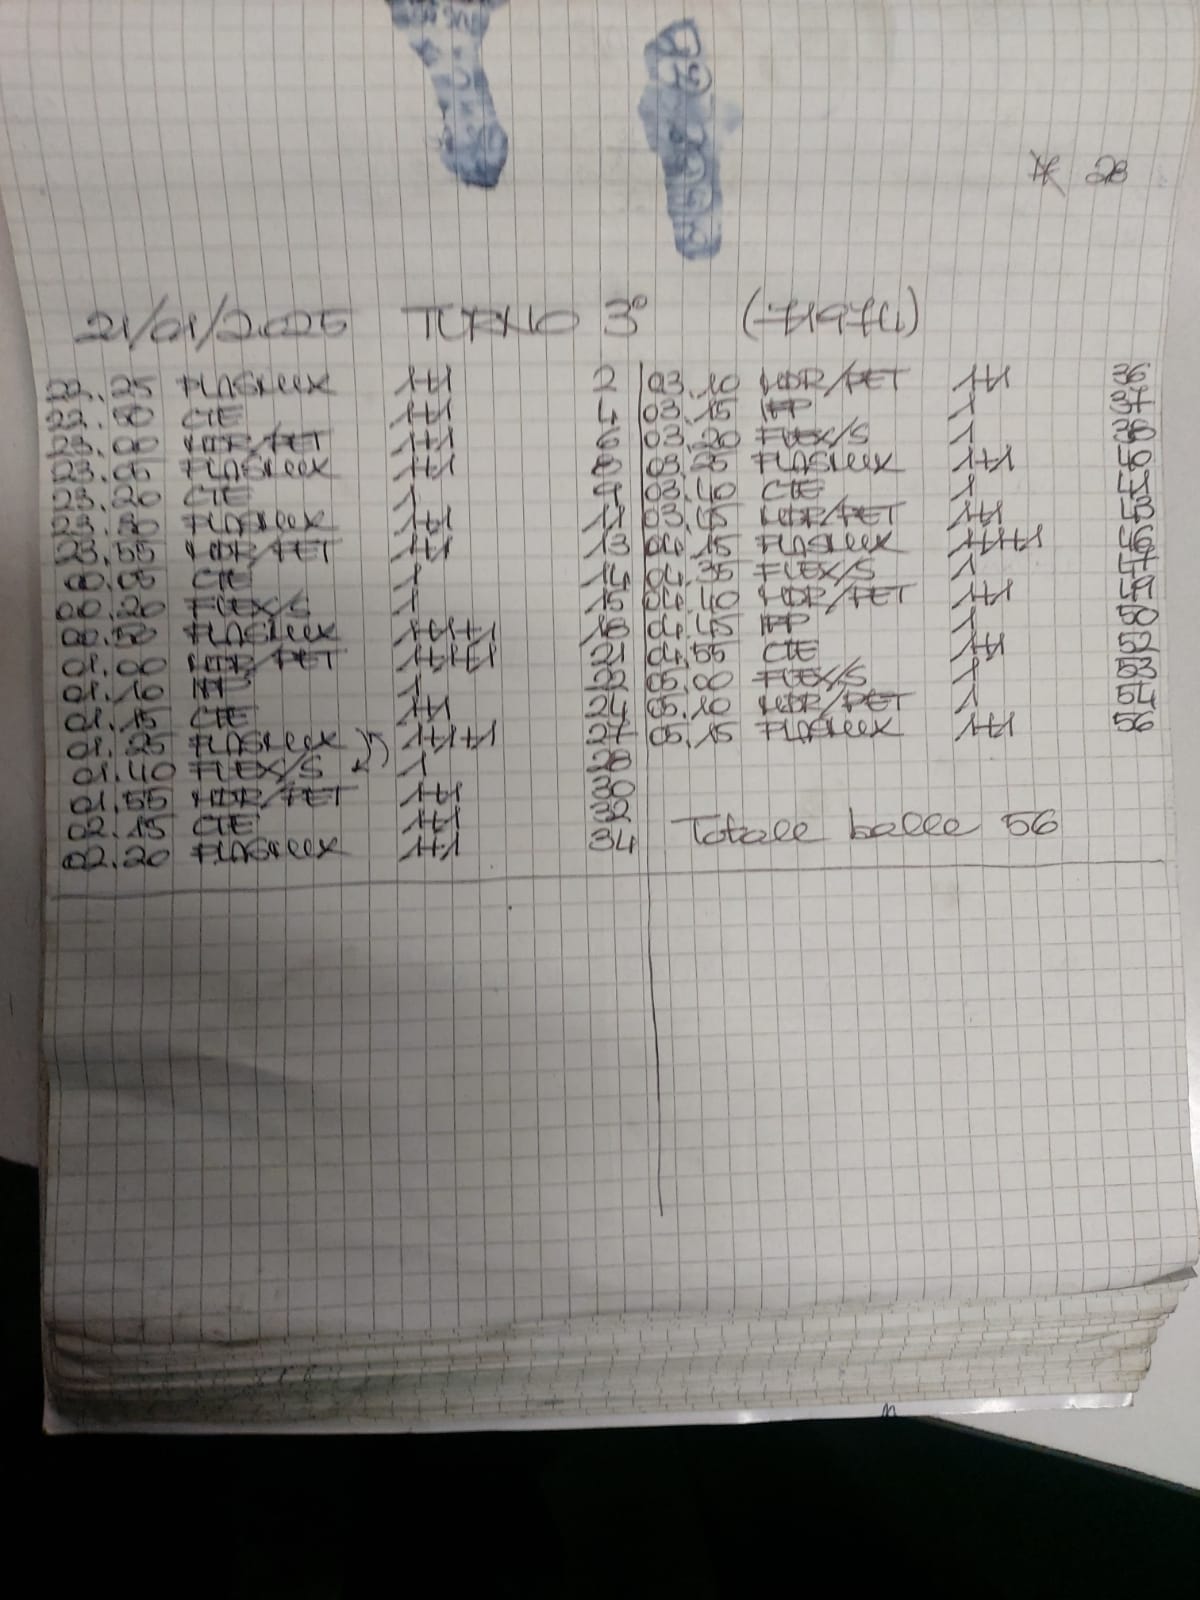 28
21/01/2025 TURNO 3°
22.25 PLASMIX 1+1 2
22.50 CTE 1+1 4
23.00 MDR/PET 1+1 6
23.05 PLASMIX 1+1 8
23.20 CTE 1 9
23.30 PLASMIX 1+1 11
23.55 MDR/PET 1+1 13
00.05 CTE 1 14
00.20 FLEX/S 1 15
00.50 PLASMIX 1+1+1 18
01.00 MDR/PET 1+1+1 21
01.10 IPP 1 22
01.15 CTE 1+1 24
01.25 PLASMIX 1+1+1 27
01.40 FLEX/S 1 28
01.55 MDR/PET 1+1 30
02.15 CTE 1+1 32
02.20 PLASMIX 1+1 34
03.10 MDR/PET 1+1 36
03.15 IPP 1 37
03.20 FLEX/S 1 38
03.25 PLASMIX 1+1 40
03.40 CTE 1 41
03.45 MDR/PET 1+1 43
04.15 PLASMIX 1+1+1 46
04.35 FLEX/S 1 47
04.40 MDR/PET 1+1 49
04.45 IPP 1 50
04.55 CTE 1+1 52
05.00 FLEX/S 1 53
05.10 MDR/PET 1 54
05.15 PLASMIX 1+1 56
Totale balle 56